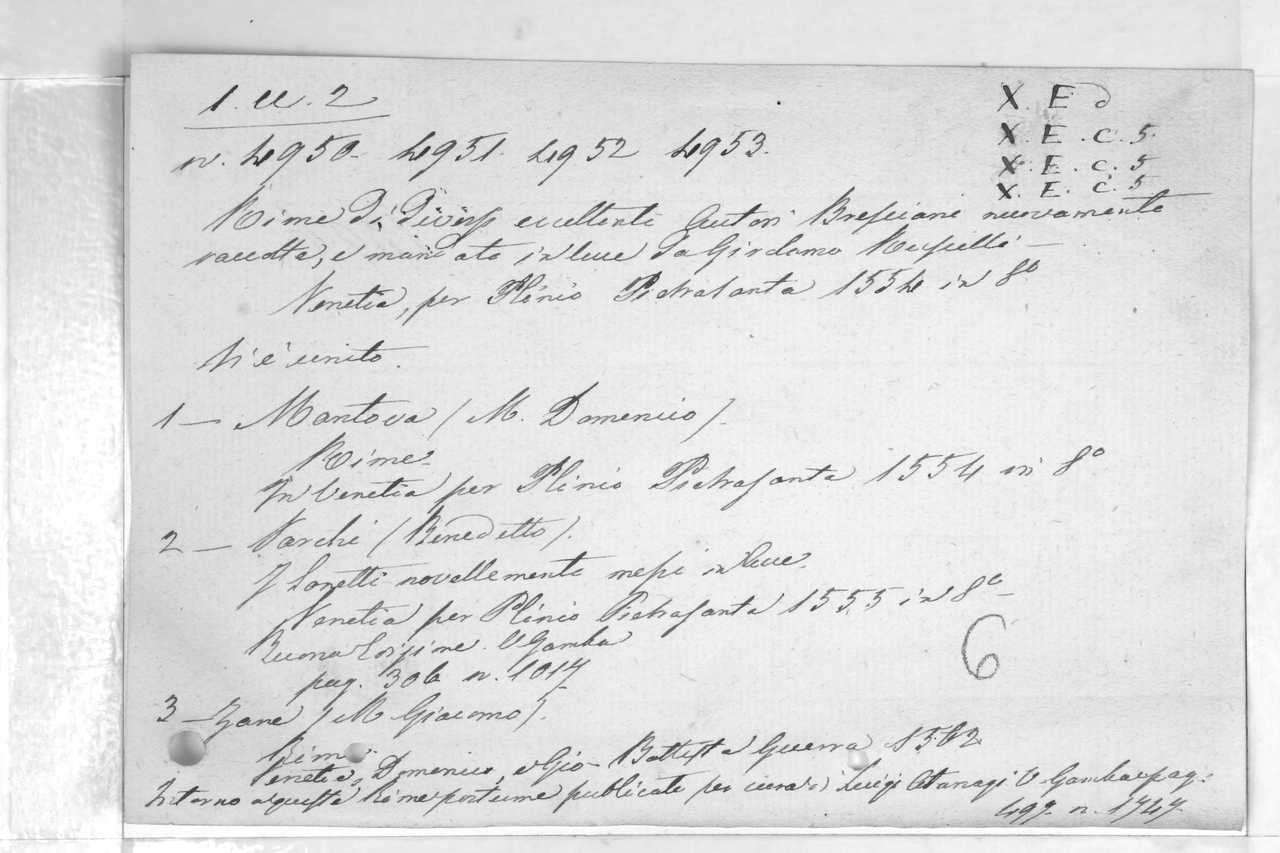 1. u. 2
X. E d
n. 4950. 4951. 4952 4953.
X. E. c. 5
X. E. c. 5
X. E. c. 5
Rime di Diversi eccellenti Autori Bresciani nuovamente
raccolte, e mandate in luce da Girolamo Ruscelli
Venetia, per Plinio Pietrasanta 1554 in 8º
Vi è unito.
1 — Mantova (M. Domenico).
Rime.
In Venetia per Plinio Pietrasanta 1554 in 8º
2 — Varchi (Benedetto).
I Sonetti novellemente messi in luce.
Venetia per Plinio Pietrasanta 1555 in 8º
Buona Edizione. V Gamba
pag. 306 n. 1017
3 — Zane (M Giacomo).
Rime
Venetia, Domenico, e Gio. Battista Guerra 1562
Intorno a queste Rime postume publicate per cura di Luigi Atanagi V Gamba pag.
497. n. 1747.
6